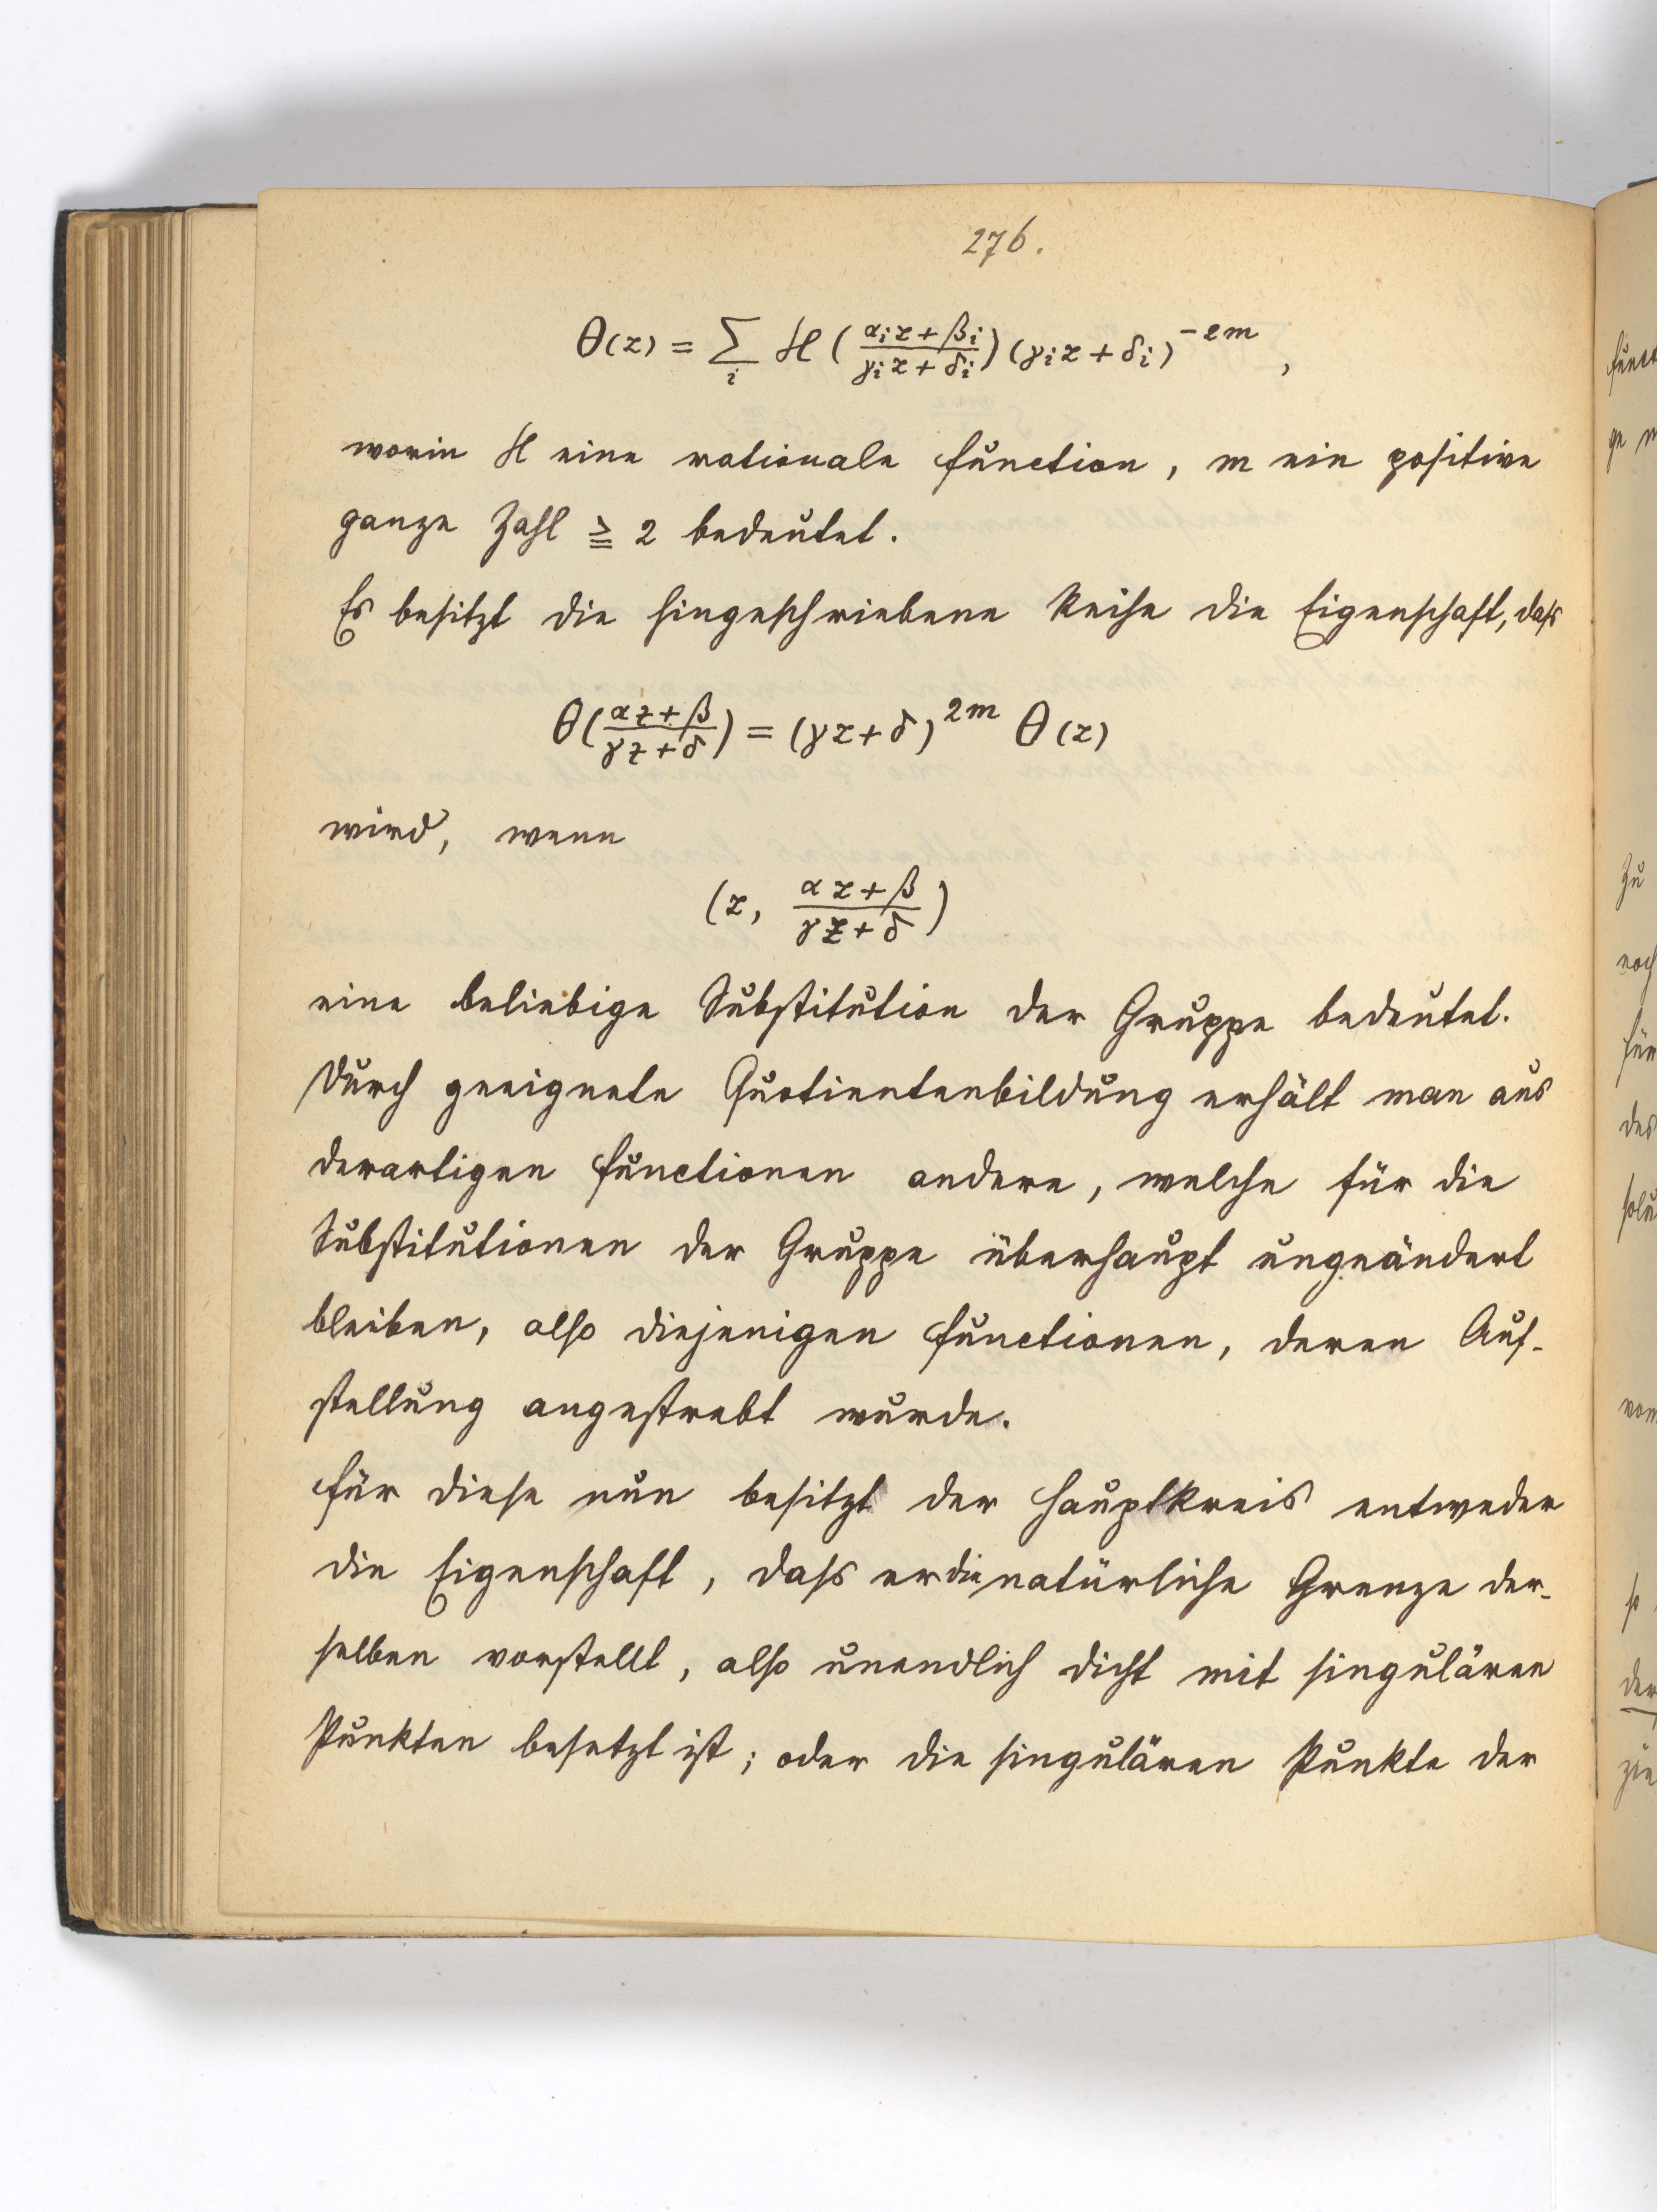 276.
Θ(z) = Σ_i H ( (α_i z + β_i)/(γ_i z + δ_i) ) (γ_i z + δ_i)^{-2m} ,
worin H eine rationale Function, m ein positive
ganze Zahl ≧ 2 bedeutet.
Es besitzt die hingeschriebene Reihe die Eigenschaft, dass
Θ( (αz+β)/(γz+δ) ) = (γz+δ)^{2m} Θ(z)
wird, wenn
(z, (αz+β)/(γz+δ))
eine beliebige Substitution der Gruppe bedeutet.
Durch geeignete Quotientenbildung erhält man aus
derartigen Functionen andere, welche für die
Substitutionen der Gruppe überhaupt ungeändert
bleiben, also diejenigen Functionen, deren Auf-
stellung angestrebt wurde.
Für diese nun besitzt der Hauptkreis entweder
die Eigenschaft, dass er die natürliche Grenze der-
selben vorstellt, also unendlich dicht mit singulären
Punkten besetzt ist; oder die singulären Punkte der